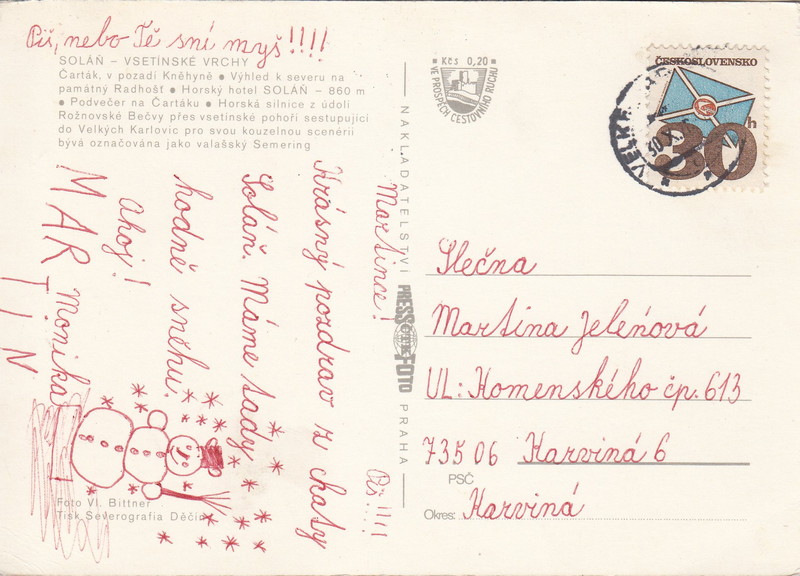 Piš, nebo Tě sní myš!!!!
SOLÁŇ – VSETÍNSKÉ VRCHY
Čarták, v pozadí Kněhyně • Výhled k severu na
památný Radhošť • Horský hotel SOLÁŇ – 860 m
• Podvečer na Čartáku • Horská silnice z údolí
Rožnovské Bečvy přes vsetínské pohoří sestupující
do Velkých Karlovic pro svou kouzelnou scenérii
bývá označována jako valašský Semering
Martince!
Krásný pozdrav z chaty
Soláň. Máme tady
hodně sněhu.
Ahoj!
Monika
MARTIN
Piš!!!!
Foto Vl. Bittner
Tisk Severografia Děčín
NAKLADATELSTVÍ PRESSFOTO PRAHA
Kčs 0,20
VE PROSPĚCH CESTOVNÍHO RUCHU
ČESKOSLOVENSKO
30h
VELKÉ
30.X
Slečna
Martina Jeleńová
UL: Komenského čp. 613
73506 Karviná 6
PSČ
Okres: Karviná